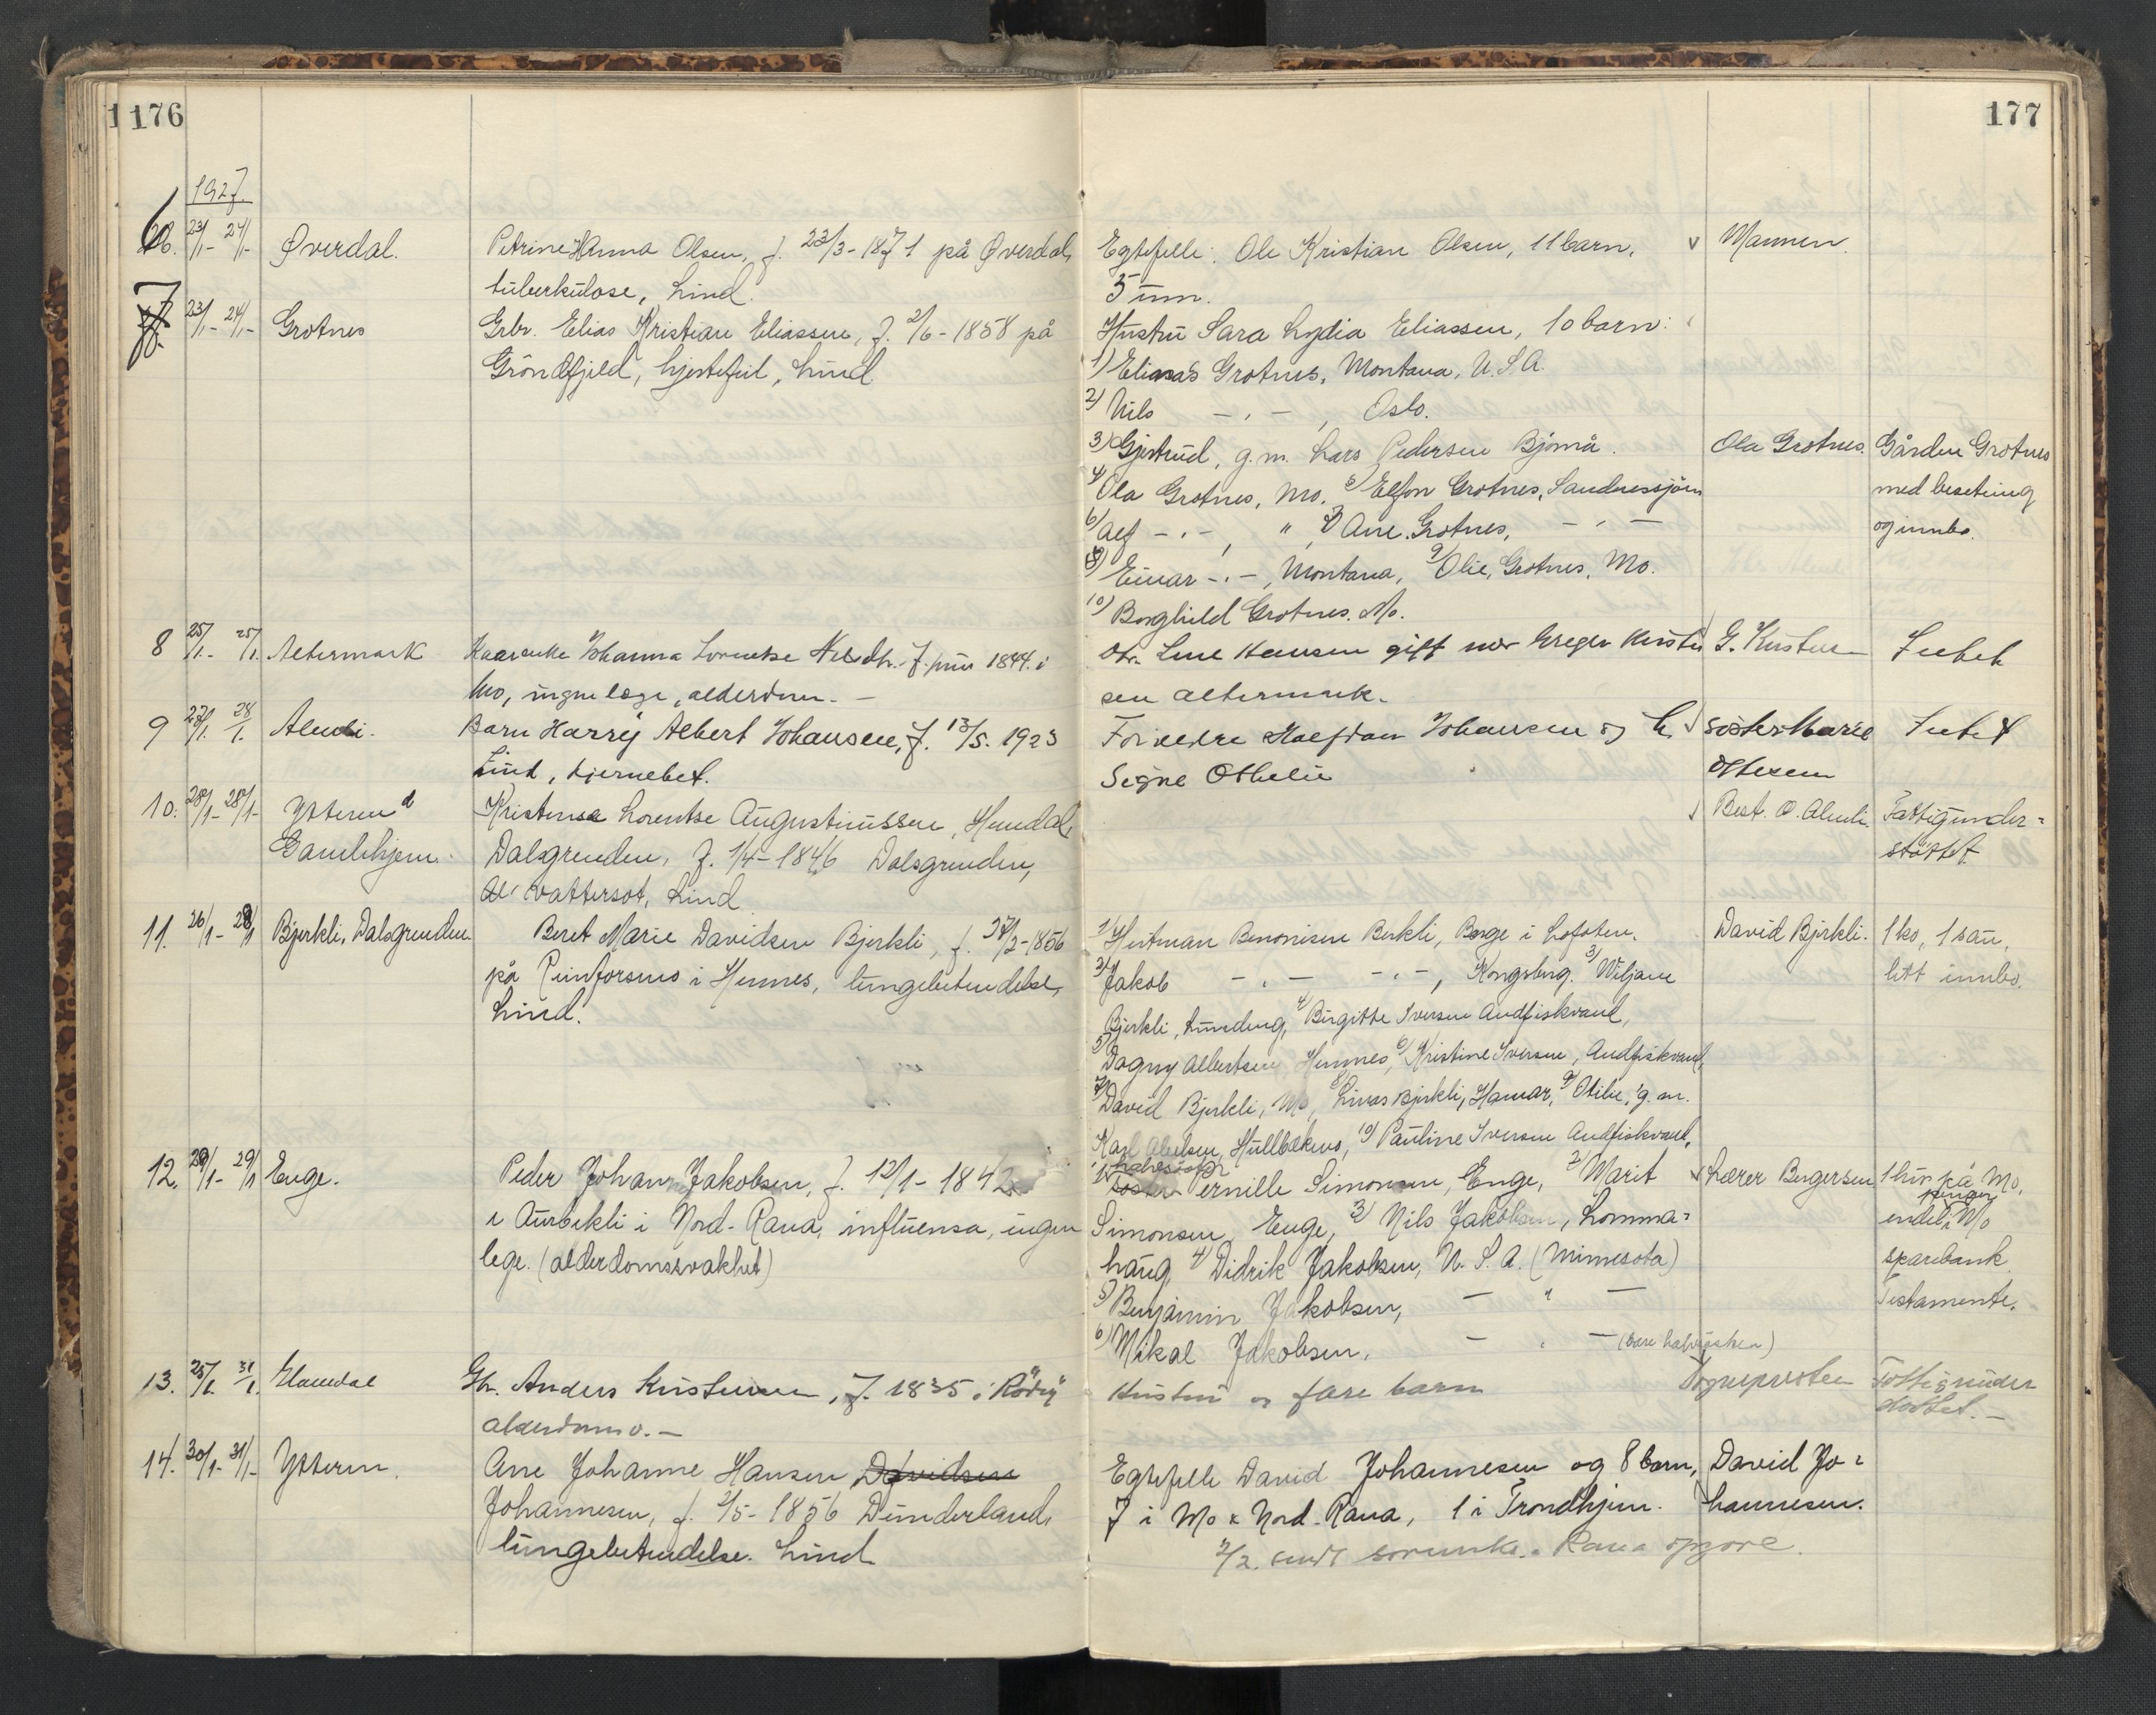 176
177
1927.
6. 23/1- 24/1- Øverdal. Petrine Hanna Olsen, f. 23/3-1871 på Øverdal, Egtefelle: Ole Kristian Olsen, 11 barn, v Mannen.
tuberkulose, Lind. 5 um.
7 23/1- 24/1- Grotnes Grbr. Elias Kristian Eliassen, f. 2/6-1858 på Hustru Sara Lydia Eliassen, 10 barn:
Gröndfjeld, hjertefeil, Lind 1) Elias Grotnes, Montana, U.S.A.
2) Nils -"-, Oslo.
3) Gjertrud, g.m. Lars Pedersen Bjørnå. Ola Grotnes. Gården Grotnes
4) Ola Grotnes, Mo. 5) Elfon Grotnes, Sandnessjøen med besetning
6) Alf -"-, " 7) Ane Grotnes, -"- og innbo.
8) Einar -"-, Montana, 9) Olie, Grotnes, Mo.
10) Borghild Grotnes. Mo.
8 25/1- 25/1. Altermark Johanna Lorentse Nilsdtr. f. 1844 i Dtr. Line Hansen gift
Mo, ingen læge, alderdom.- sen Altermark.
9 27/1. 28/1. Barn Harry Albert Johansen, f. 13/5. 1923 Forældre Halfdan Johansen og h. søster Marie
Lind, hjernebet. Signe Othelie Ottesen
10. 28/1- 28/1- Ytteren Kristensa Lorentse Augustinussen, Hundal, Best. O. Alenli. Fattigunder=
Gamlehjem. Dalsgrenden, f. 1/4-1846 Dalsgrenden, støttet
vattersot, Lind
11. 26/1- 28/1 Bjerkli, Dalsgrenden. Beret Marie Davidsen Bjerkli, f. 27/2-1856 1) Hartman Benonisen Berkli, Borge i Lofoten. David Bjerkli. 1 ko, 1 sau,
på Reinforsnes i Hemnes, lungebetendelse, 2) Jakob -"- -"-, Kongsberg. 3) Wiljam litt innbo.
Lind. Bjerkli, 4) Birgitte Iversen Andfiskvand,
5) Dagny Albertsen Hemnes, 6) Kristine Iversen, Andfiskvand,
7) David Bjerkli, Mo, 8) Linas Bjerkli, Hamar, 9) Otilie, g.m.
Karl 10) Pauline Iversen Andfiskvand.
12. 29/1- 29/1 Enge. Peder Johan Jakobsen, f. 12/1-1842 1) halvsøster Pernille Simonsen, Enge, 2) Marit Lærer Bergersen 1 hus på Mo,
i Aurbekli i Nord-Rana, influensa, ingen Simonsen, Enge, 3) Nils Jakobsen, Lomma= endel penger i Mo
lege. (alderdomssvakhet) haug 4) Didrik Jakobsen, U.S.A. (Minnesota) sparebank.
5) Benjamin Jakobsen, -"- Testamente.
6) Mikal Jakobsen, -"- (bare halvsøsken)
13. 25/1. 31/1. Anders Kristensen, f. 1835 i Hustru og flere barn Fattigunder
alderdom.- støttet.-
14. 30/1- 31/1- Ytteren. Ane Johanne Hansen Davidsen Egtefelle David Johannesen og 8 barn, David Jo=
Johannesen, f. 2/5-1856 Dunderland, 7 i Mo & Nord-Rana, 1 i Trondhjem. hannesen.
lungebetendelse. Lind 2/2. sendt Rana